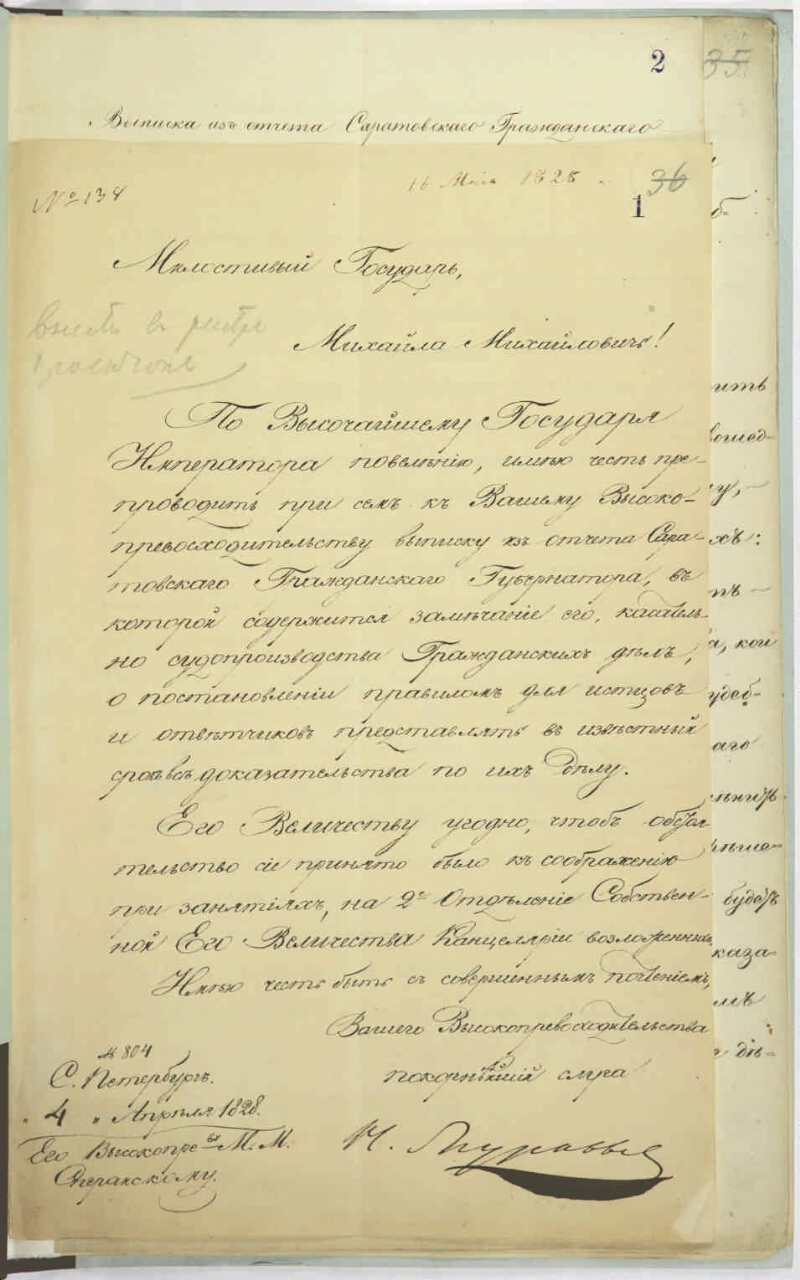 2
35.
Выписка изъ отчета Саратовскаго Гражданскаго
16 Мая 1828
36
№ 134
1
Милостивый Государь,
Михайла Михайловичь!
По Высочайшему Государя
Императора повелѣнію, имѣю честь пре-
проводить при семъ къ Вашему Высоко-
превосходительству выписку изъ отчета Сара-
товскаго Гражданскаго Губернатора, въ
которой содержится замѣчаніе его, касатель-
но судопроизводства Гражданскихъ дѣлъ,
о постановленіи правиломъ для истцовъ
и отвѣтчиковъ представлять въ извѣстный
срокъ всѣ доказательства по ихъ дѣлу.
Его Величеству угодно, чтобъ обстоя-
тельство сіе принято было къ соображенію
при занятіяхъ, на 2е Отдѣленіе Собствен-
ной Его Величества Канцеляріи возложенныхъ.
Имѣю честь быть съ совершеннымъ почтеніемъ,
Вашего Высокопревосходительства
покорнѣйшій слуга
№ 804
С. Петербургъ.
" 4 " Апрѣля 1828.
Его Высокопре-ву М. М.
Сперанскому.
Н. Муравьев
ить
вошед-
у,-
хъ:
а, кои
удоб-
аго
будетъ
каза-
мъ